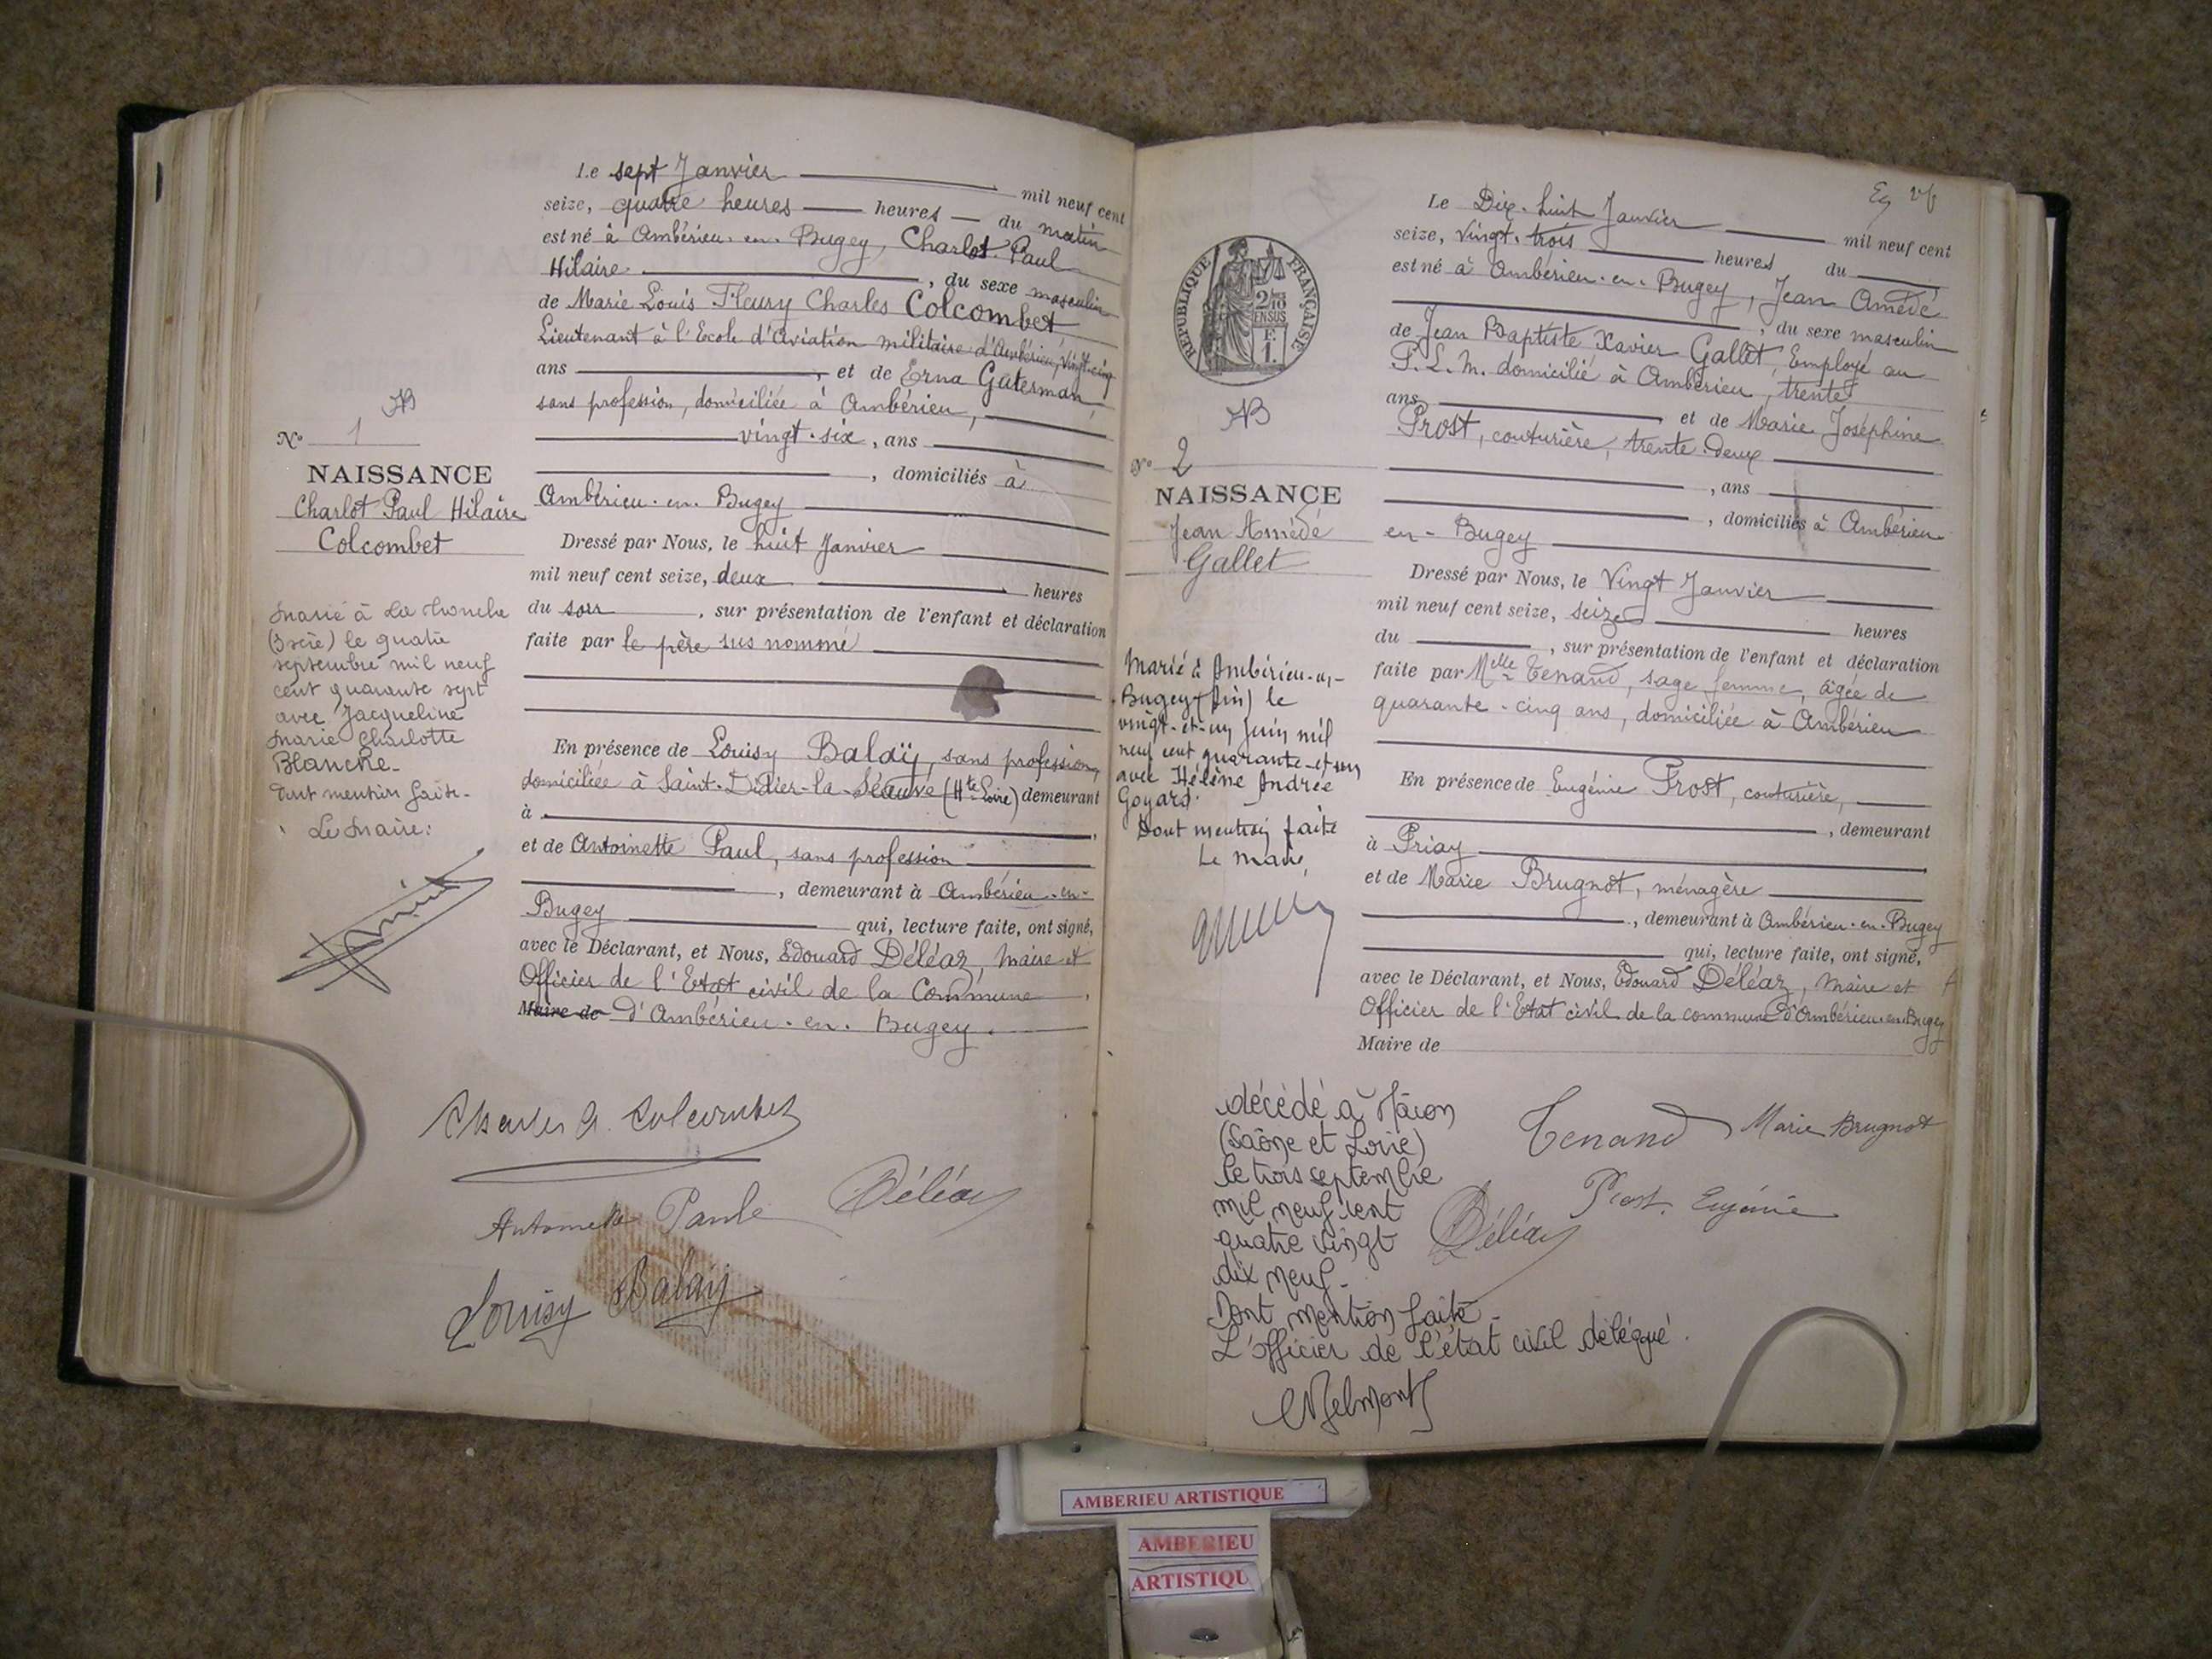 Le sept Janvier mil neuf cent
seize, quatre heures heures du matin
est né à Ambérieu-en-Bugey, Charlot Paul
Hilaire, du sexe masculin
de Marie Louis Fleury Charles Colcombet
Lieutenant à l'Ecole d'Aviation militaire d'Ambérieu, vingt-cinq
ans, et de Erna Gaterman,
sans profession, domiciliée à Ambérieu,
vingt-six, ans
, domiciliés à
Ambérieu-en-Bugey
Dressé par Nous, le huit Janvier
mil neuf cent seize, deux heures
du soir, sur présentation de l'enfant et déclaration
faite par le père sus nommé
En présence de Louisy Balaÿ, sans profession,
domiciliée à Saint-Didier-la-Séauve (Hte Loire) demeurant
à ,
et de Antoinette Paul, sans profession
, demeurant à Ambérieu-en-
Bugey qui, lecture faite, ont signé,
avec le Déclarant, et Nous, Edouard Déléaz, Maire et
Officier de l'Etat civil de la Commune
Maire de d'Ambérieu-en-Bugey.
N° 1
NAISSANCE
Charlot Paul Hilaire
Colcombet
Marié à La Tronche
(Isère) le quatre
septembre mil neuf
cent quarante sept
avec Jacqueline
Marie Charlotte
Blanche.
Dont mention faite.
Le Maire:
Déléaz
Louisy Balaÿ
Le Dix-huit Janvier mil neuf cent
seize, vingt-trois heures du
est né à Ambérieu-en-Bugey, Jean Amédé
, du sexe masculin
de Jean Baptiste Xavier Gallet, Employé au
P.L.M. domicilié à Ambérieu, trente
ans et de Marie Joséphine
Prost, couturière, trente-deux
, ans
, domiciliés à Ambérieu
en-Bugey
Dressé par Nous, le Vingt Janvier
mil neuf cent seize, seize heures
du , sur présentation de l'enfant et déclaration
faite par Melle Tenand, sage femme, âgée de
quarante-cinq ans, domiciliée à Ambérieu
En présence de Eugénie Prost, couturière,
, demeurant
à Priay
et de Marie Brugnot, ménagère
, demeurant à Ambérieu-en-Bugey
qui, lecture faite, ont signé,
avec le Déclarant, et Nous, Edouard Déléaz, Maire et
Officier de l'Etat civil de la commune d'Ambérieu-en-Bugey
Maire de
RÉPUBLIQUE FRANÇAISE
2/10
EN SUS
F.
1.
N° 2
NAISSANCE
Jean Amédé
Gallet
Marié à Ambérieu-en-
Bugey (Ain) le
vingt-et-un Juin mil
neuf cent quarante-et-un
avec Hélène Andrée
Goyard.
Dont mention faite
Le Maire,
décédé à Mâcon
(Saône et Loire)
le trois septembre
mil neuf cent
quatre vingt
dix neuf.
Dont mention faite.
L'officier de l'état civil délégué.
Tenand Marie Brugnot
Prost Eugénie
Déléaz
AMBERIEU ARTISTIQUE
AMBERIEU
ARTISTIQU